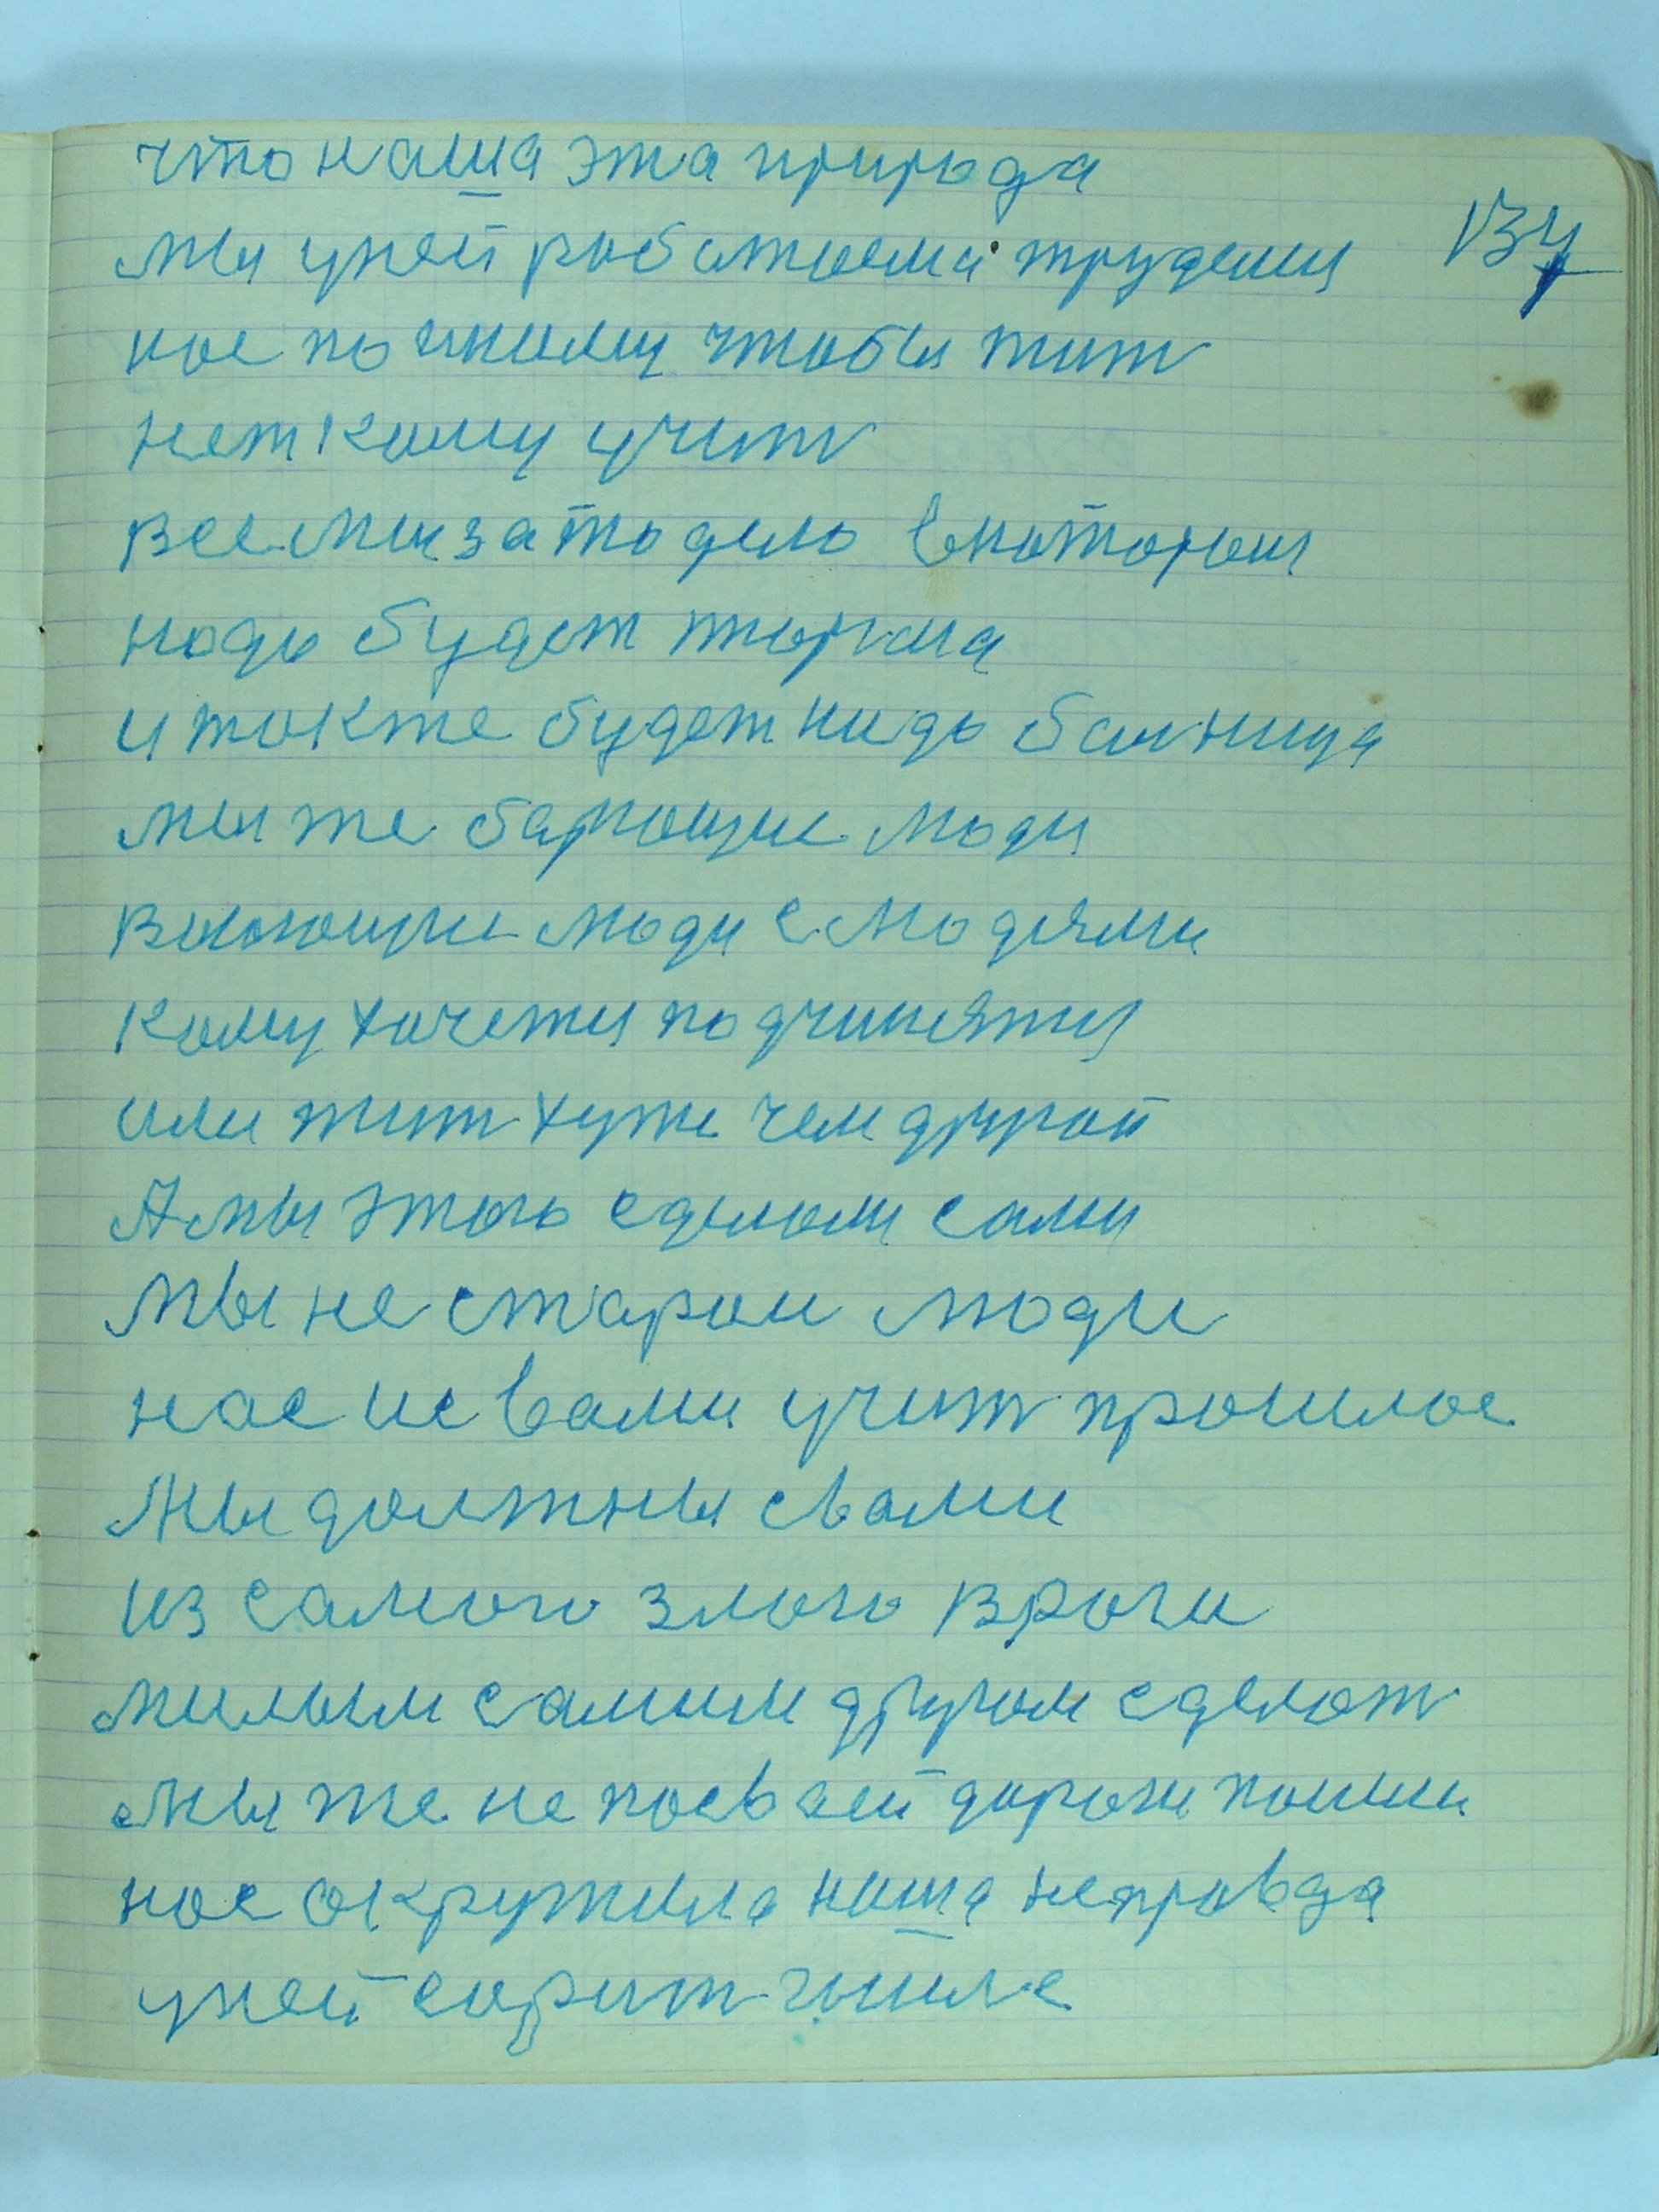 что наша эта природа
134
мы у ней работаем трудимся
нас по иному чтобы жит
нет кому учит
все мы за то дело в котором
надо будет тюрма
и также будет надо болница
мы же борющие люди
воюющие люди с людями
кому хочется подчинятся
или жит хуже чем другой
А мы этого сделали сами
мы не старои люди
нас не вами учит прошлое
мы должны с вами
из самого злого врага
милым самим другом сделат
мы же не по своей дороги пошли
нас окружила наша неправда
у ней